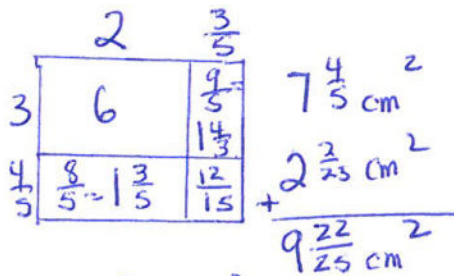 2 3/5
3 6 9/5 =
1 4/5
4/5 8/5 = 1 3/5 12/15
7 4/5 cm²
+ 2 2/25 cm²
9 22/25 cm²